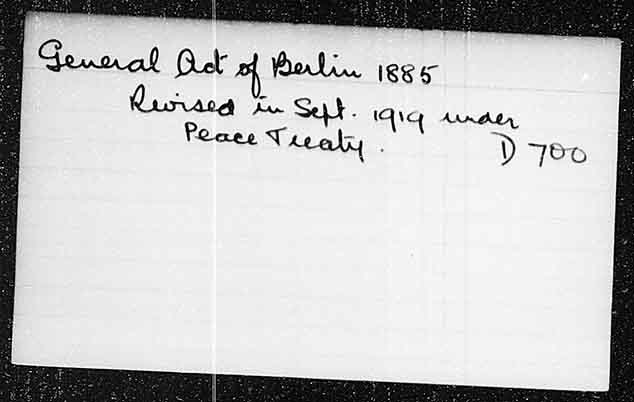 General Act of Berlin 1885
Revised in Sept. 1919 under
Peace Treaty.
D 700